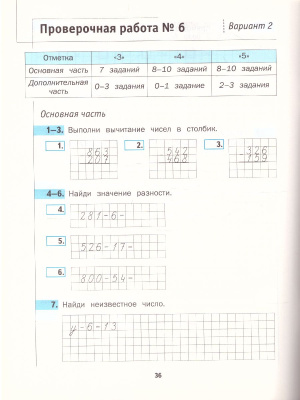 Проверочная работа № 6
Вариант 2
Отметка «3» «4» «5»
Основная часть 7 заданий 8–10 заданий 8–10 заданий
Дополнительная часть 0–3 задания 0–1 задание 2–3 задания
Основная часть
1–3. Выполни вычитание чисел в столбик.
1. 2. 3.
863 542 326
207 468 159
4–6. Найди значение разности.
4. 281-6-
5. 526-17-
6. 800-54-
7. Найди неизвестное число.
у-6-13
36